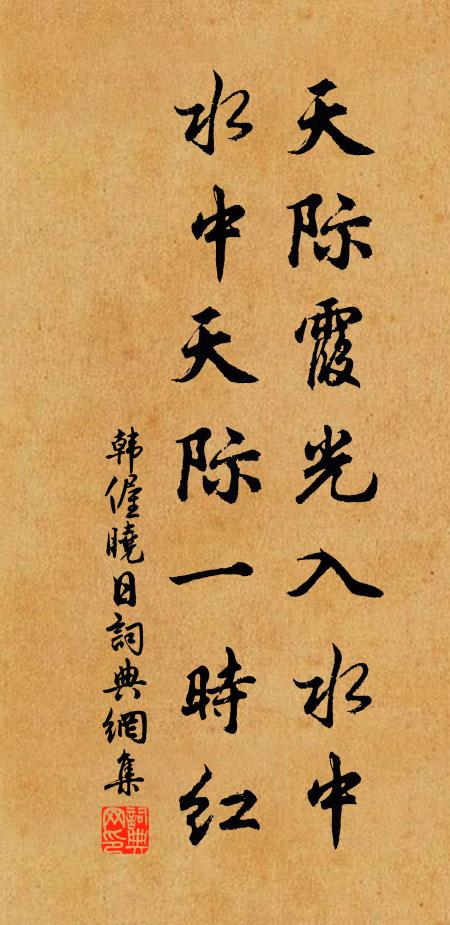 天际霞光入水中
水中天际一時红
韩偓曉日詞典網集
詞典网印